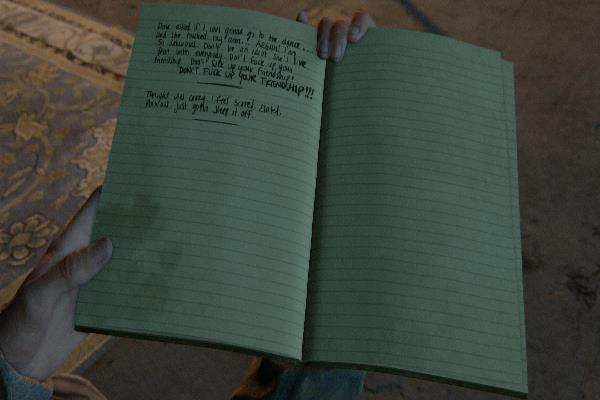 Dina asked if I was gonna go to the dance...
and she touched my arm... Again! I am
so awkward. Don't be an idiot. She's like
that with everybody. Don't fuck up your
friendship. Don't fuck up your friendship!
DON'T FUCK UP YOUR FRIENDSHIP!!!
Tonight was crazy. I feel scared. Elated.
Anxious. Just gotta sleep it off.